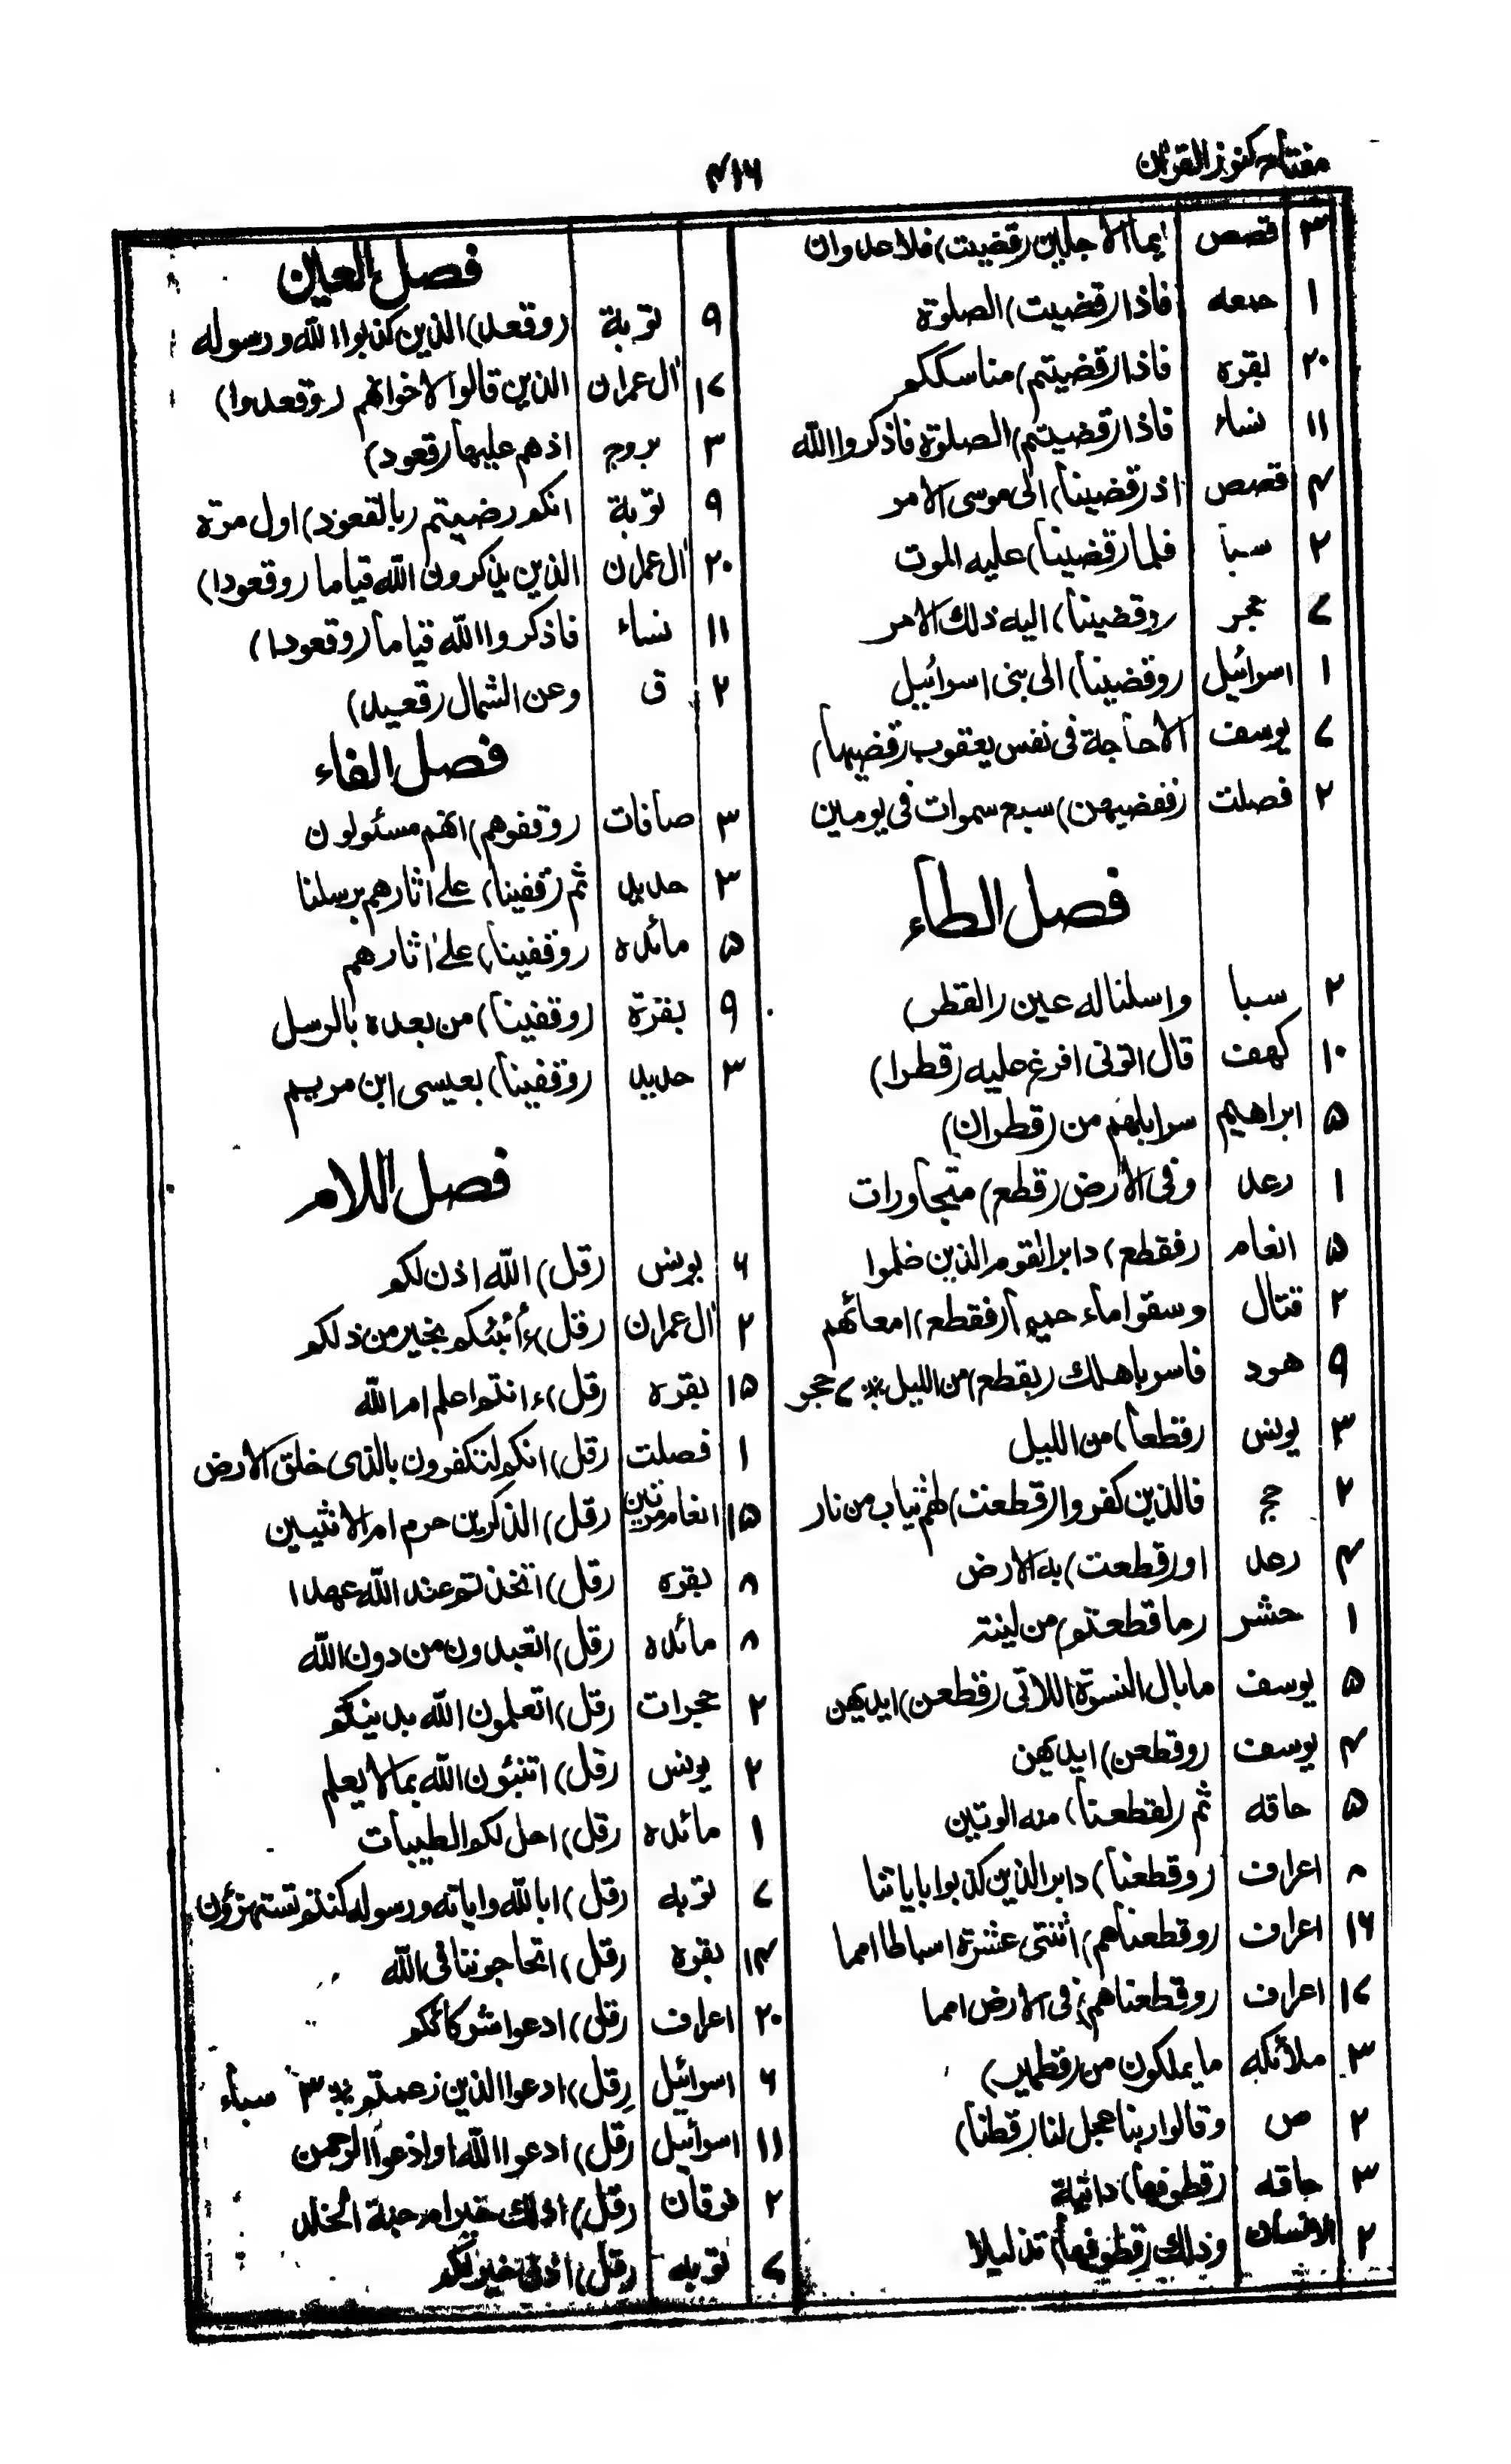 مفتاح كنوز القرآن
۴۱۶
۳ قصص ايما الاجلين (قضيت) فلا عدوان
۱ جمعه فاذا (قضيت) الصلوة
۲۰ بقره فاذا (قضيتم) مناسككم
۱۱ نساء فاذا (قضيتم) الصلوة فاذكروا الله
۴ قصص اذ (قضينا) الى موسى الامر
۲ سبأ فلما (قضينا) عليه الموت
۷ حجر (وقضينا) اليه ذلك الامر
۱ اسرائيل (وقضينا) الى بنى اسرائيل
۷ يوسف الا حاجة فى نفس يعقوب (قضيها)
۲ فصلت (فقضيهن) سبع سموات فى يومين
فصل الطاء
۲ سبا واسلنا له عين (القطر)
۱۰ كهف قال اتونى افرغ عليه (قطرا)
۵ ابراهيم سرابيلهم من (قطران)
۱ رعد وفى الارض (قطع) متجاورات
۵ انعام (فقطع) دابر القوم الذين ظلموا
۲ قتال وسقوا ماء حميما (فقطع) امعائهم
۹ هود فاسر باهلك (بقطع) من الليل * ۷ حجر
۳ يونس (قطعا) من الليل
۲ حج فالذين كفروا (قطعت) لهم ثياب من نار
۴ رعد او (قطعت) به الارض
۱ حشر (ما قطعتم) من لينة
۵ يوسف ما بال النسوة اللاتى (قطعن) ايديهن
۴ يوسف (وقطعن) ايديهن
۵ حاقه ثم (لقطعنا) منه الوتين
۸ اعراف (وقطعنا) دابر الذين كذبوا باياتنا
۱۶ اعراف (وقطعناهم) اثنتى عشرة اسباطا امما
۱۷ اعراف (وقطعناهم) فى الارض امما
۳ ملائكه ما يملكون من (قطمير)
۲ ص وقالوا ربنا عجل لنا (قطنا)
۳ حاقه (قطوفها) دانية
۲ الانسان وذللت (قطوفها) تذليلا
فصل العين
۹ توبة (وقعد) الذين كذبوا الله ورسوله
۱۷ آل عمران الذين قالوا لاخوانهم (وقعدوا)
۳ بروج اذ هم عليها (قعود)
۹ توبة انكم رضيتم (بالقعود) اول مرة
۲۰ آل عمران الذين يذكرون الله قياما (وقعودا)
۱۱ نساء فاذكروا الله قياما (وقعودا)
۲ ق وعن الشمال (قعيد)
فصل الفاء
۳ صافات (وقفوهم) انهم مسئولون
۳ حديد ثم (قفينا) على اثارهم برسلنا
۵ مائده (وقفينا) على اثارهم
۹ بقرة (وقفينا) من بعده بالرسل
۳ حديد (وقفينا) بعيسى ابن مريم
فصل اللام
۶ يونس (قل) الله اذن لكم
۲ آل عمران (قل) ءأنبئكم بخير من ذلكم
۱۵ بقره (قل) ءانتم اعلم ام الله
۱ فصلت (قل) انكم لتكفرون بالذى خلق الارض
۱۵ انعام مرتين (قل) الذكرين حرم ام الانثيين
۸ بقره (قل) اتخذتم عند الله عهدا
۸ مائده (قل) اتعبدون من دون الله
۲ حجرات (قل) اتعلمون الله بدينكم
۲ يونس (قل) اتنبئون الله بما لا يعلم
۱ مائده (قل) احل لكم الطيبات
۷ توبه (قل) ابالله واياته ورسوله كنتم تستهزؤن
۱۴ بقره (قل) اتحاجوننا فى الله
۲۰ اعراف (قل) ادعوا شركائكم
۶ اسرائيل (قل) ادعوا الذين زعمتم * ۳ سباء
۱۱ اسرائيل (قل) ادعوا الله او ادعوا الرحمن
۲ فرقان (قل) اذلك خير ام جنة الخلد
۷ توبه (قل) اذن خير لكم